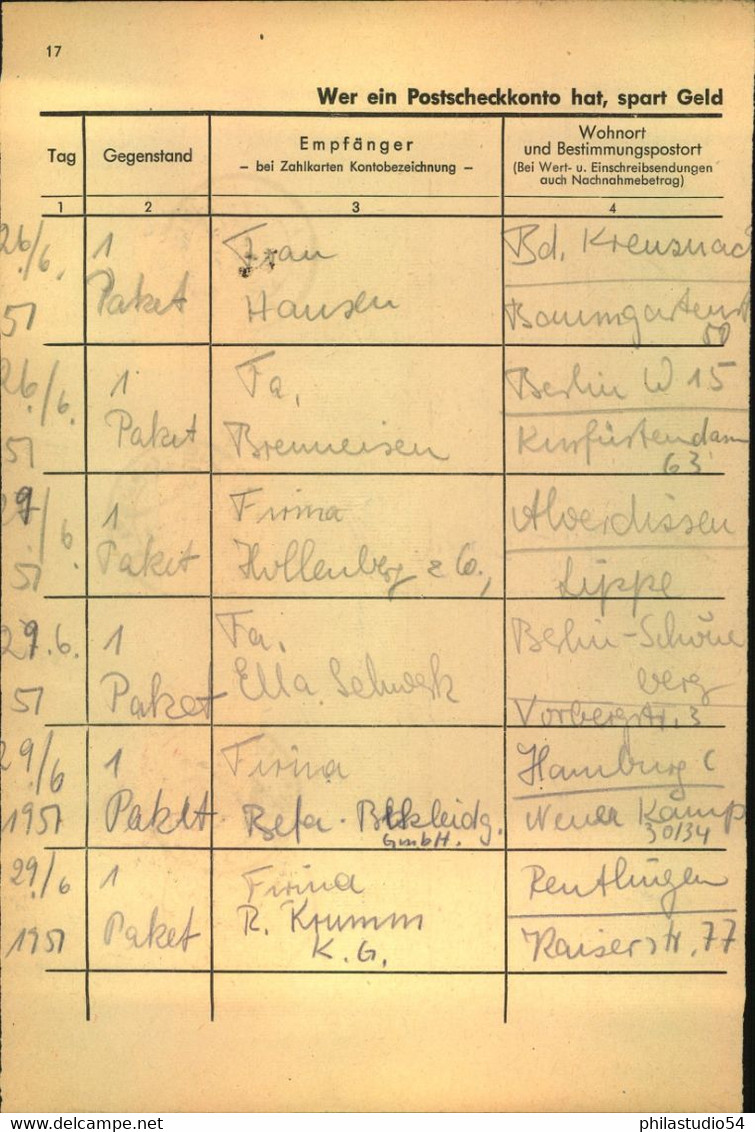 17
Wer ein Postscheckkonto hat, spart Geld
Tag
Gegenstand
Empfänger
– bei Zahlkarten Kontobezeichnung –
Wohnort
und Bestimmungspostort
(Bei Wert- u. Einschreibsendungen
auch Nachnahmebetrag)
1 2 3 4
26/6. 1 Frau Bd. Kreusnac
51 Paket Hansen Baumgartenst
50
26/6. 1 Fa. Berlin W 15
51 Paket Brenneisen Kurfürstendam
63
29/6. 1 Firma Alverdissen
51 Paket Hollenberg & Co., Lippe
29.6. 1 Fa. Berlin-Schöne
berg
51 Paket Ella Vorbergstr. 3
29/6 1 Firma Hamburg
1951 Paket Befa. Bekleidg. Neuer Kamp
GmbH. 30/34
29/6 1 Firma Reutlingen
1951 Paket R. Krumm Kaiserstr. 77
K.G.
philastudio54